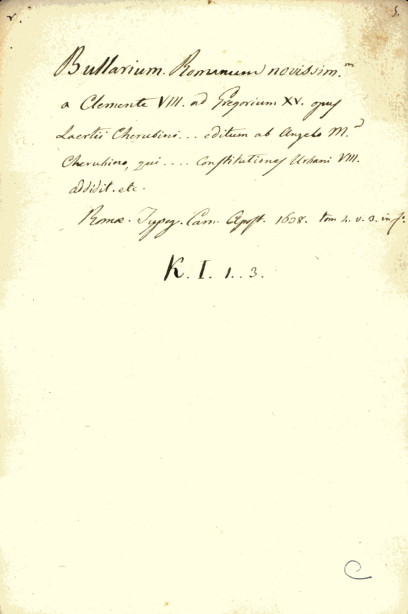 v. S.
Bullarium Romanum novissim.m
a Clemente VIII. ad Gregorium XV. opus
Laertii Cherubini... editum ab Angelo M.a
Cherubino, qui .... Constitutiones Urbani VIII.
addidit. etc.
Romæ. Typog. Cam. Apost. 1638. tom 4. v. 3. in f.
K. I. 1..3.
C